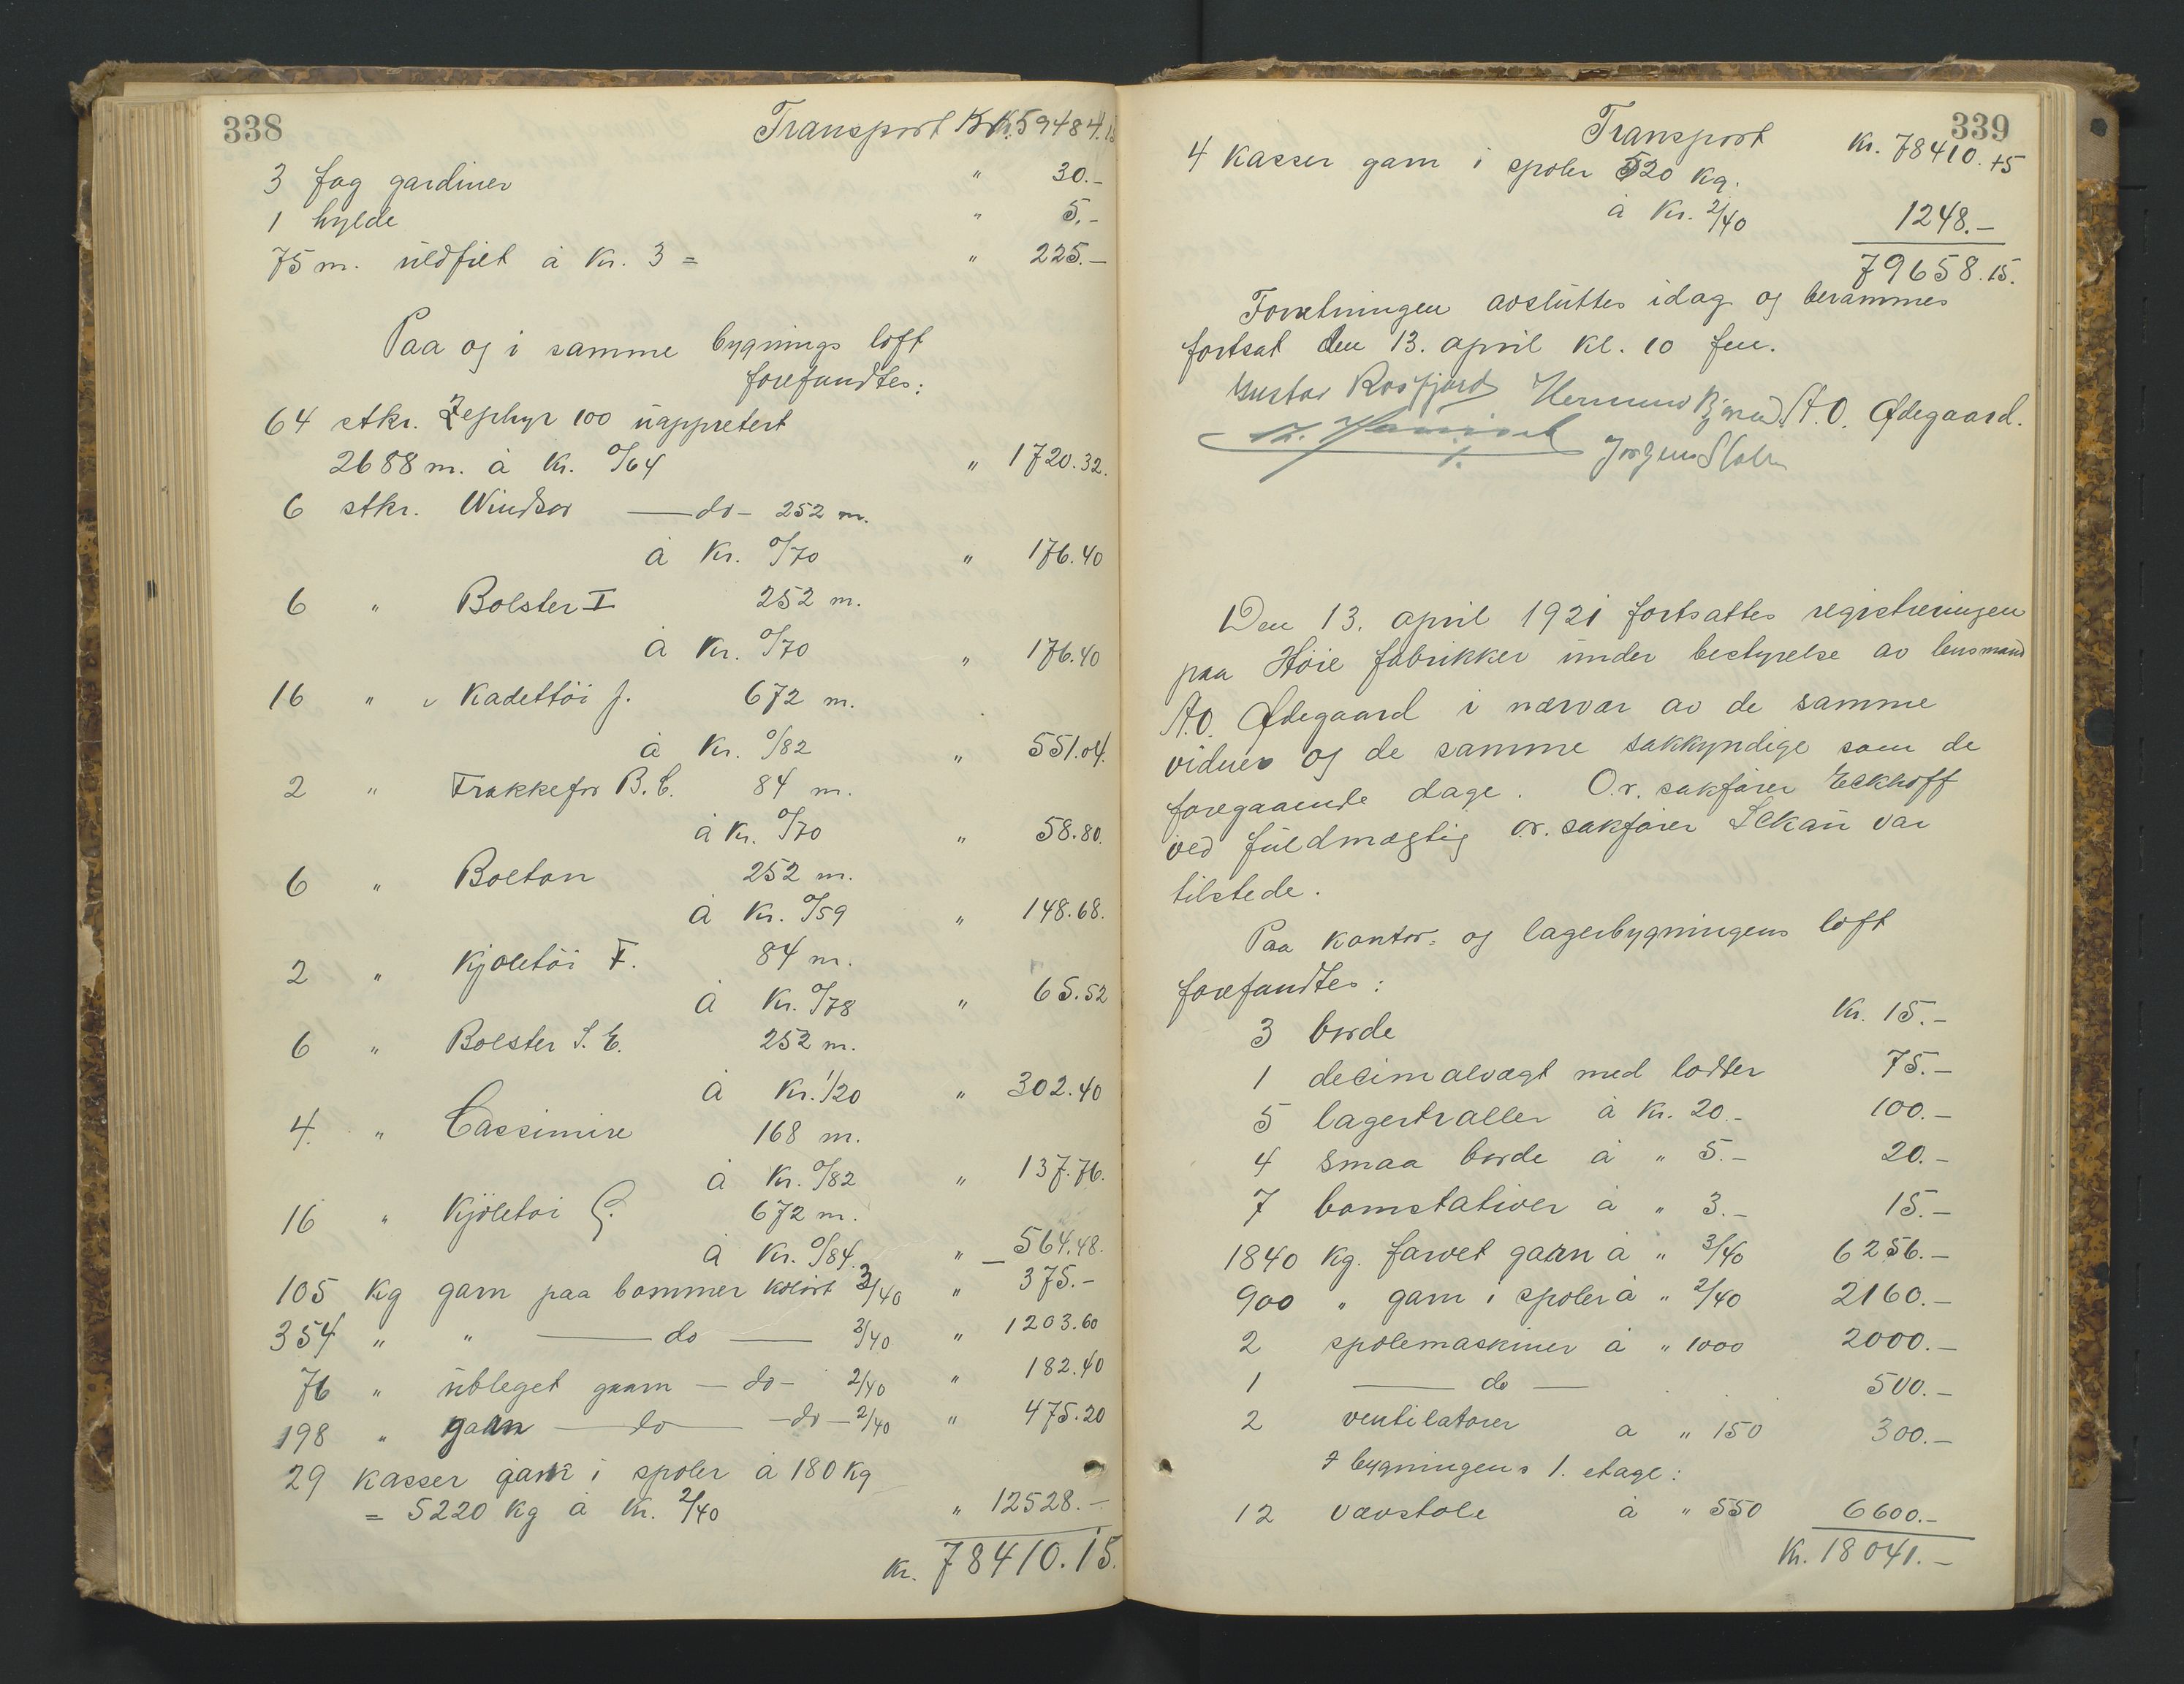 338
Transport Kr. 59484.15
3 fag gardiner " 30.-
1 hylde " 5.-
75 m. uldfilt à Kr. 3 = " 225.-
Paa og i samme bygnings loft
forefandtes:
64 stkr. Zephyr 100 uappretert
2688 m. à Kr. 0/64 " 1720.32.
6 stkr. Windsor — do - 252 m.
à Kr. 0/70 " 176.40
6 " Bolster I 252 m.
à Kr. 0/70 " 176.40
16 " Kadettöi J. 672 m.
à Kr. 0/82 " 551.04.
2 " Frakkefor B.C. 84 m.
à Kr. 0/70 " 58.80.
6 " Bolton 252 m.
à Kr. 0/59 " 148.68.
2 " Kjoletöi F. 84 m.
à Kr. 0/78 " 65.52
6 " Bolster S. E. 252 m.
à Kr. 1/20 " 302.40
4. " Cassimire 168 m.
à Kr. 0/82 " 137.76.
16 " Kjöletöi G. 672 m.
à Kr. 0/84. " 564.48.
105 kg garn paa bommer kolört 3/40 " 375.-
354 " " — do — 3/40 " 1203.60
76 " ubleget garn — do - 2/40 " 182.40
198 " garn — do — - do - 2/40 " 475.20
29 kasser garn i spoler à 180 kg
= 5220 kg à Kr. 2/40 " 12528.-
Kr. 78410.15.
339
Transport Kr. 78410.15
4 kasser garn i spoler 520 kg.
à Kr. 2/40 1248.-
79658.15.
Forretningen avsluttes idag og berammes
fortsat den 13. april kl. 10 fm.
Gustav Rosfjord A.O. Ødegaard.
Den 13. april 1921 fortsattes registreringen
paa Höie fabrikker under bestyrelse av lensmand
A.O. Ødegaard i nærvær av de samme
vidner og de samme sakkyndige som de
foregaaende dage. O.r. sakfører Eckhoff
ved fuldmægtig o.r. sakfører Sckau var
tilstede.
Paa kontor- og lagerbygningens loft
forefandtes:
3 borde Kr. 15.-
1 decimalvægt med lodder 75.-
5 lagertraller à Kr. 20.- 100.-
4 smaa borde à " 5.- 20.-
7 bomstativer à " 3.- 15.-
1840 kg. farvet garn à " 3/40 6256.-
900 " garn i spoler à " 2/40 2160.-
2 spolemaskiner à " 1000 2000.-
1 — do — 500.-
2 ventilatorer a " 150 300.-
I bygningens 1. etage:
12 vævstole à " 550 6600.-
Kr. 18041.-